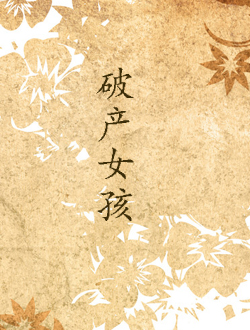 破产女孩